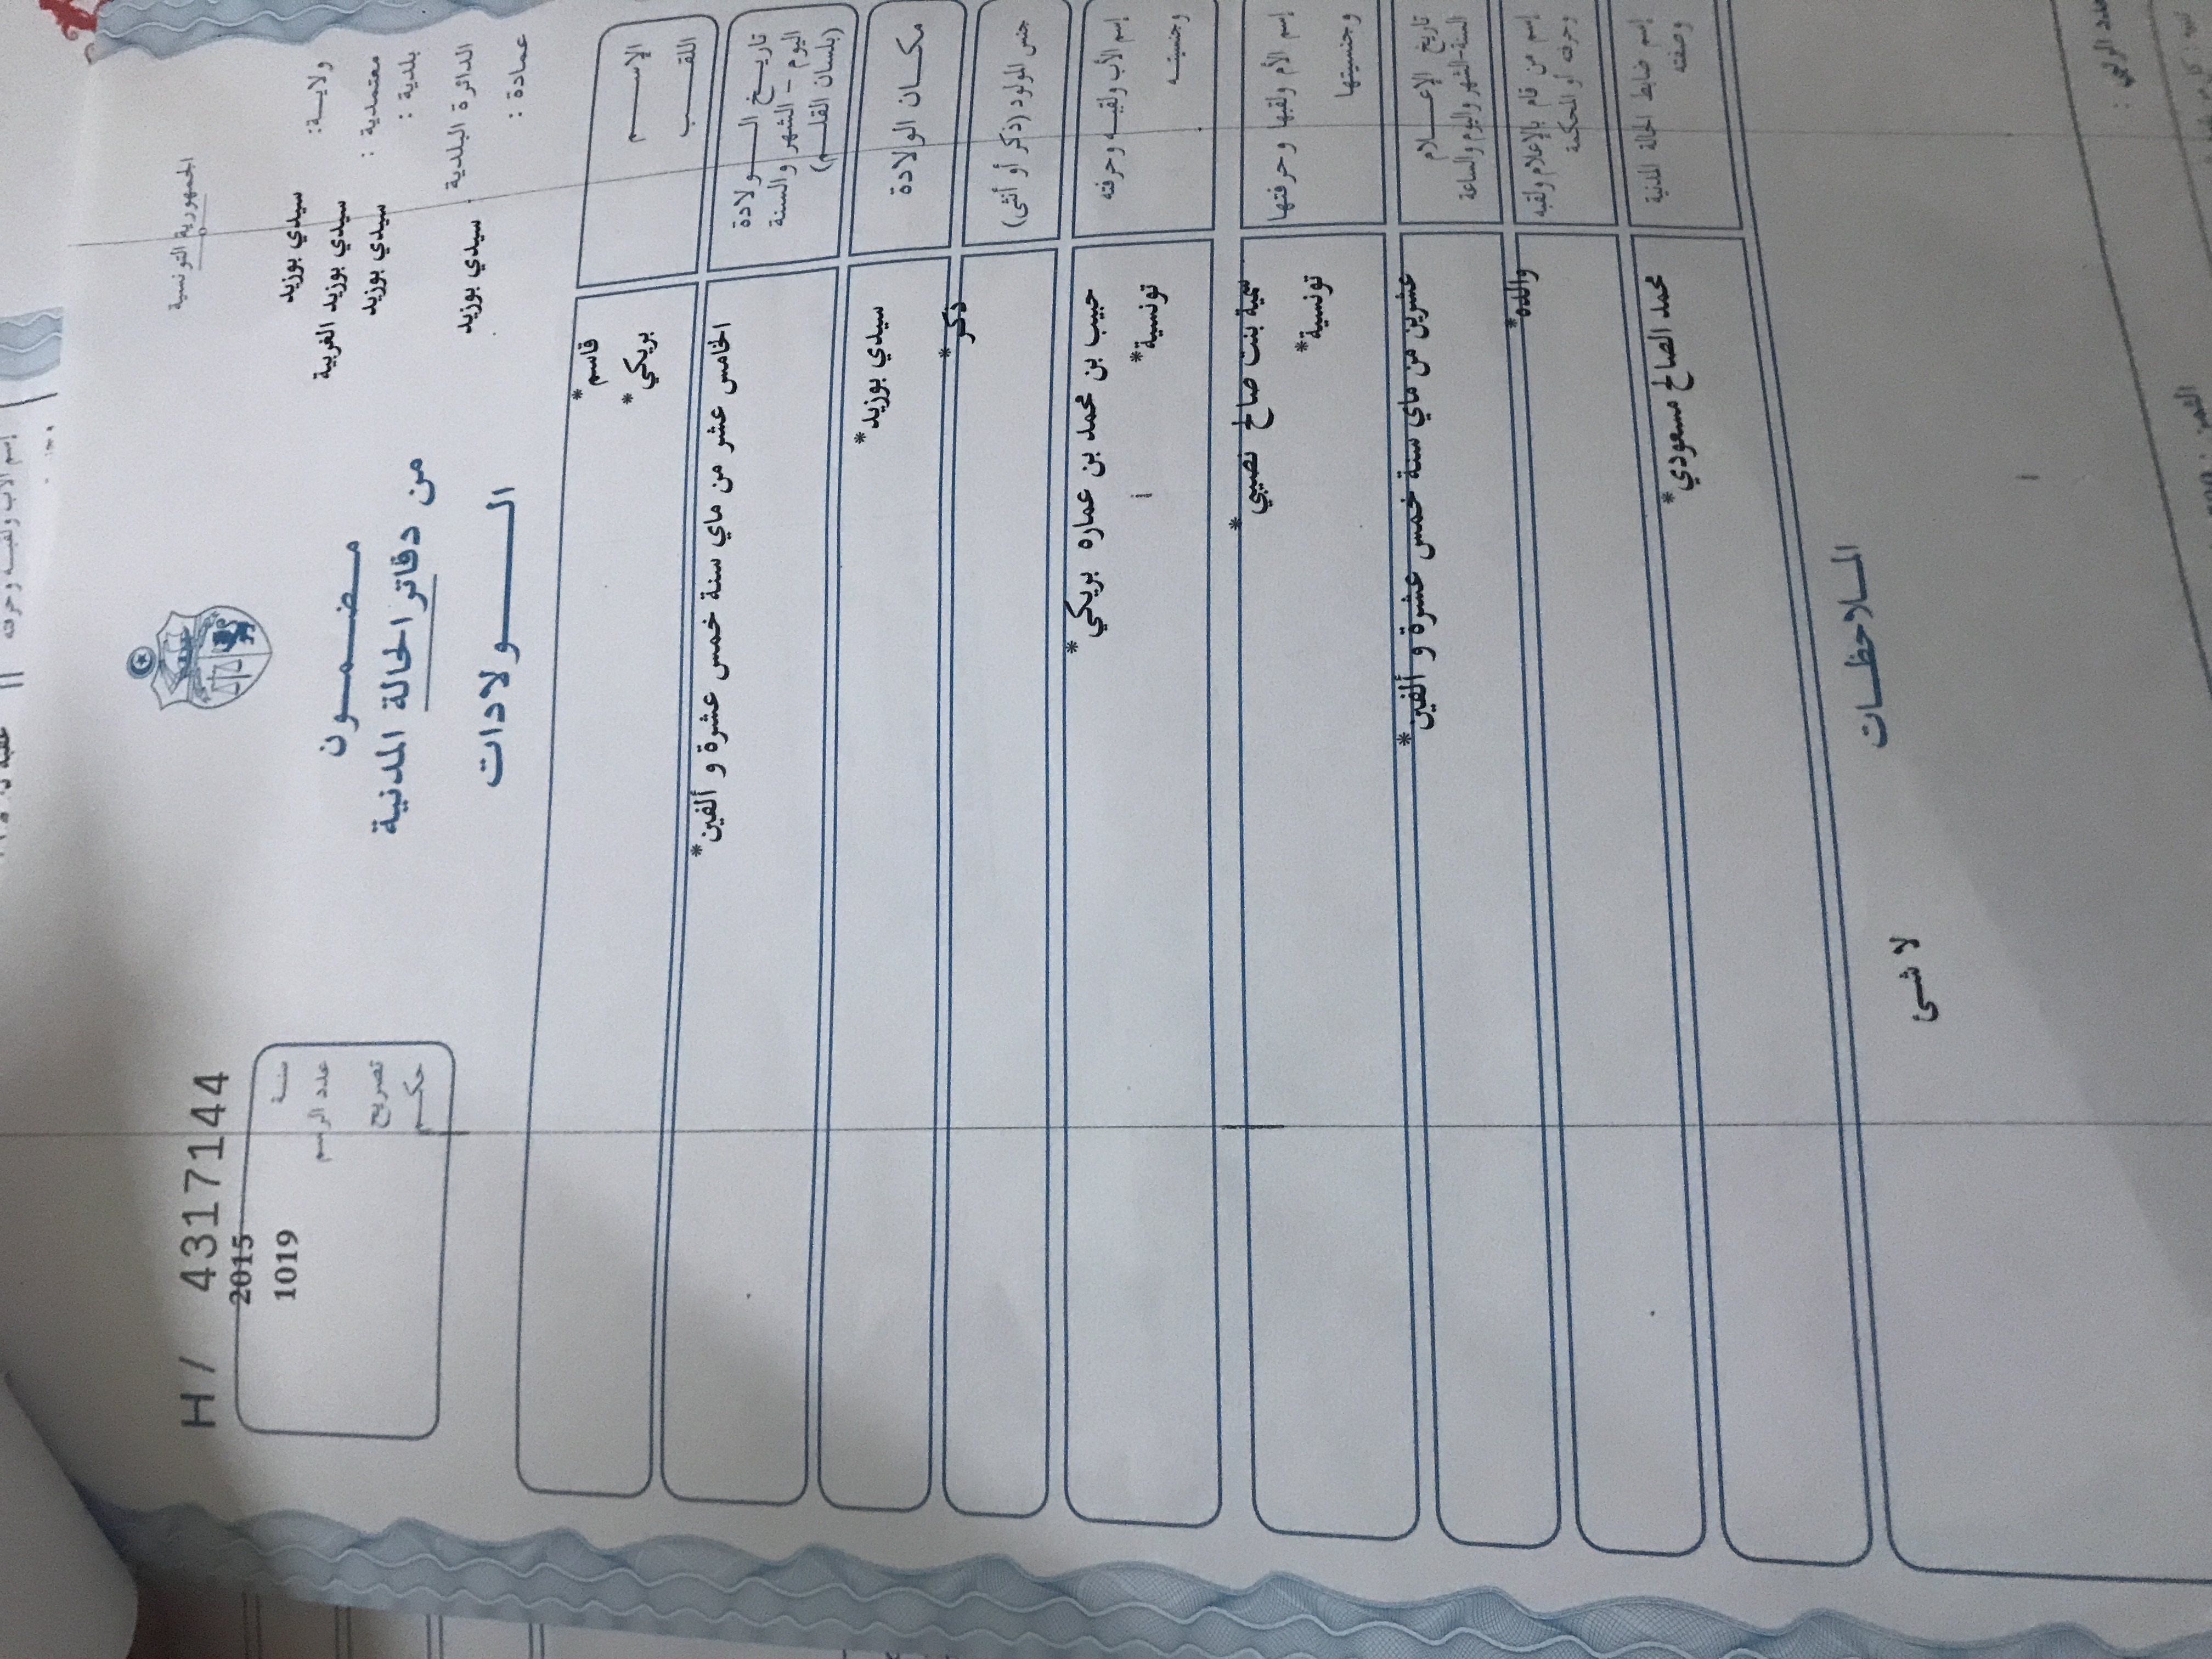 الجمهورية التونسية
ولاية: سيدي بوزيد
معتمدية : سيدي بوزيد الغربية
بلدية : سيدي بوزيد
الدائرة البلدية
عمادة : سيدي بوزيد
مضمون
من دفاتر الحالة المدنية
الولادات
H/ 4317144
سنة 2015
عدد الرسم 1019
تصريح
حكم
الإسم قاسم*
اللقب بريكي*
تاريخ الولادة
اليوم - الشهر والسنة
(بلسان القلم)
الخامس عشر من ماي سنة خمس عشرة و ألفين*
مكان الولادة سيدي بوزيد*
جنس المولود (ذكر أو أنثى) ذكر*
إسم الأب ولقبه وحرفته حبيب بن محمد بن عماره بريكي*
وجنسيته تونسية*
إسم الأم ولقبها وحرفتها سمية بنت صالح نصيبي*
وجنسيتها تونسية*
تاريخ الإعلام
السنة-الشهر واليوم والساعة
عشرين من ماي سنة خمس عشرة و ألفين*
إسم من قام بالإعلام ولقبه
وحرفته أو المحكمة
والده*
إسم ضابط الحالة المدنية
وصفته
محمد الصالح مسعودي*
الملاحظات
لا شىء